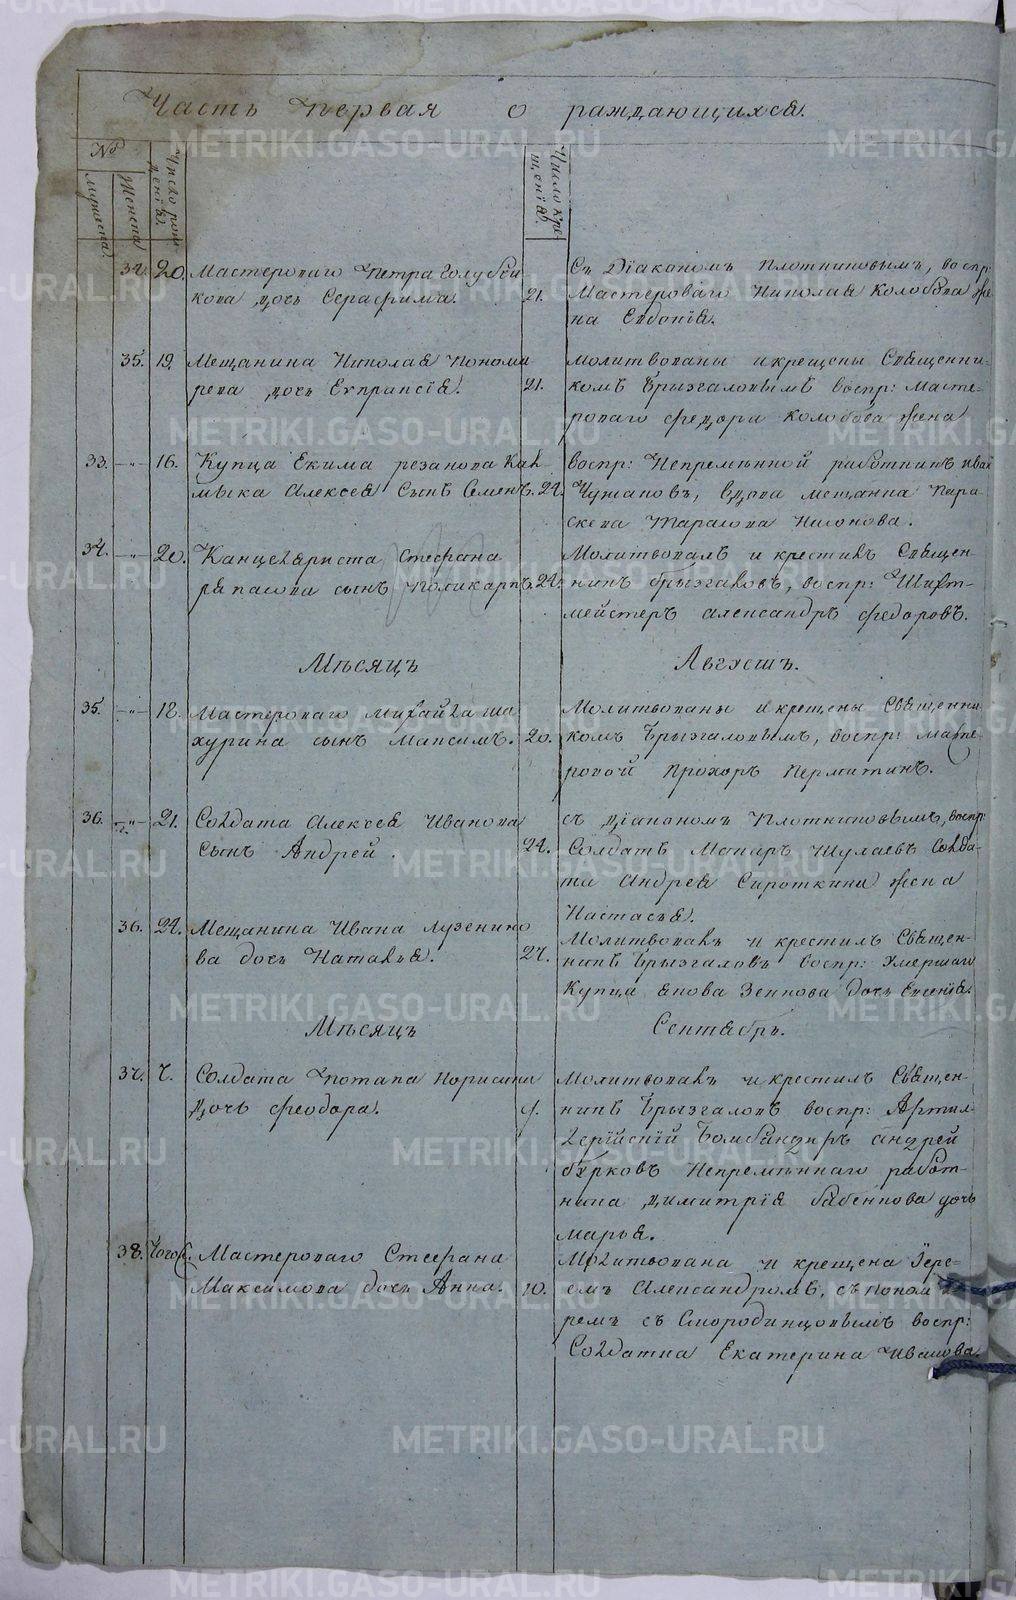 Часть первая о раждающихся.
№
мужеска
женска
Число рож
дения
Число кре
щения
34. 20. Мастероваго Петра Голубчи
кова дочь Серафима. 21.
Съ Діакономъ Плотниковымъ, воспр:
Мастероваго Николая Колобова же
на Евдокія.
35. 19. Мещанина Николая Понома
рева дочь Евпраксія. 21.
молитвованы и крещены Священни-
комъ Брызгаловымъ воспр: масте-
роваго Федора Колобова жена
33. 16. Купца Екима резанова Кал
мыка Алексея сынъ Семенъ. 24.
воспр: Непременной работникъ
вдова мещанка Пара-
скева Тарасова
34. 20. Канцеляриста Стефана
сынъ Поликарпъ. 24.
Молитвовалъ и крестилъ Священ-
никъ Брызгаловъ, воспр: Шихт-
мейстеръ Александръ Федоровъ.
Мѣсяцъ Августъ.
35. 18. Мастероваго Михайла ша
хурина сынъ Максимъ. 20.
Молитвованы и крещены Священни
комъ Брызгаловымъ, воспр: масте-
ровой Прохоръ Пермитинъ.
36. 21. Солдата Алексея Иванова
сынъ Андрей. 24.
съ діакономъ Плотниковымъ, воспр:
Солдатъ Макаръ Шулаевъ Солда-
та Андрея Сироткина жена
Настасья.
36. 24. Мещанина Ивана Лузенико
ва дочь Наталья. 27.
Молитвовалъ и крестилъ Священ-
никъ Брызгаловъ воспр: Умершаго
Купца дочь Евгенія.
Мѣсяцъ Сентябрь.
37. 7. Солдата Потапа Борисина
дочь Феодора. 9.
Молитвовалъ и крестилъ Священ-
никъ Брызгаловъ воспр: Артил-
лерійскій Бомбандиръ Андрей
бурковъ Непременнаго работ-
ника Димитрія бабенкова дочь
марья.
38. Мастероваго Стефана
Максимова дочь Анна. 10.
Молитвована и крещена Іере-
емъ Александромъ, съ понома
ремъ съ Смородинцовымъ воспр:
Солдатка Екатерина Иванова.
METRIKI.GASO-URAL.RU